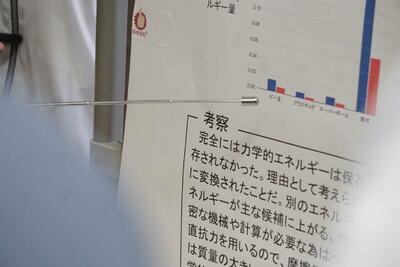 ルギー量
0.10
0.08
0.06
0.04
0.02
0.00
ビー玉
プラスチック
スーパーボール
考察
完全には力学的エネルギーは保
存されなかった。理由として考えら
に変換されたことだ。別のエネル
ネルギーが主な候補に上がる。
密な機械や計算が必要な為はっ
直抗力を用いるので、摩擦
は質量の大き